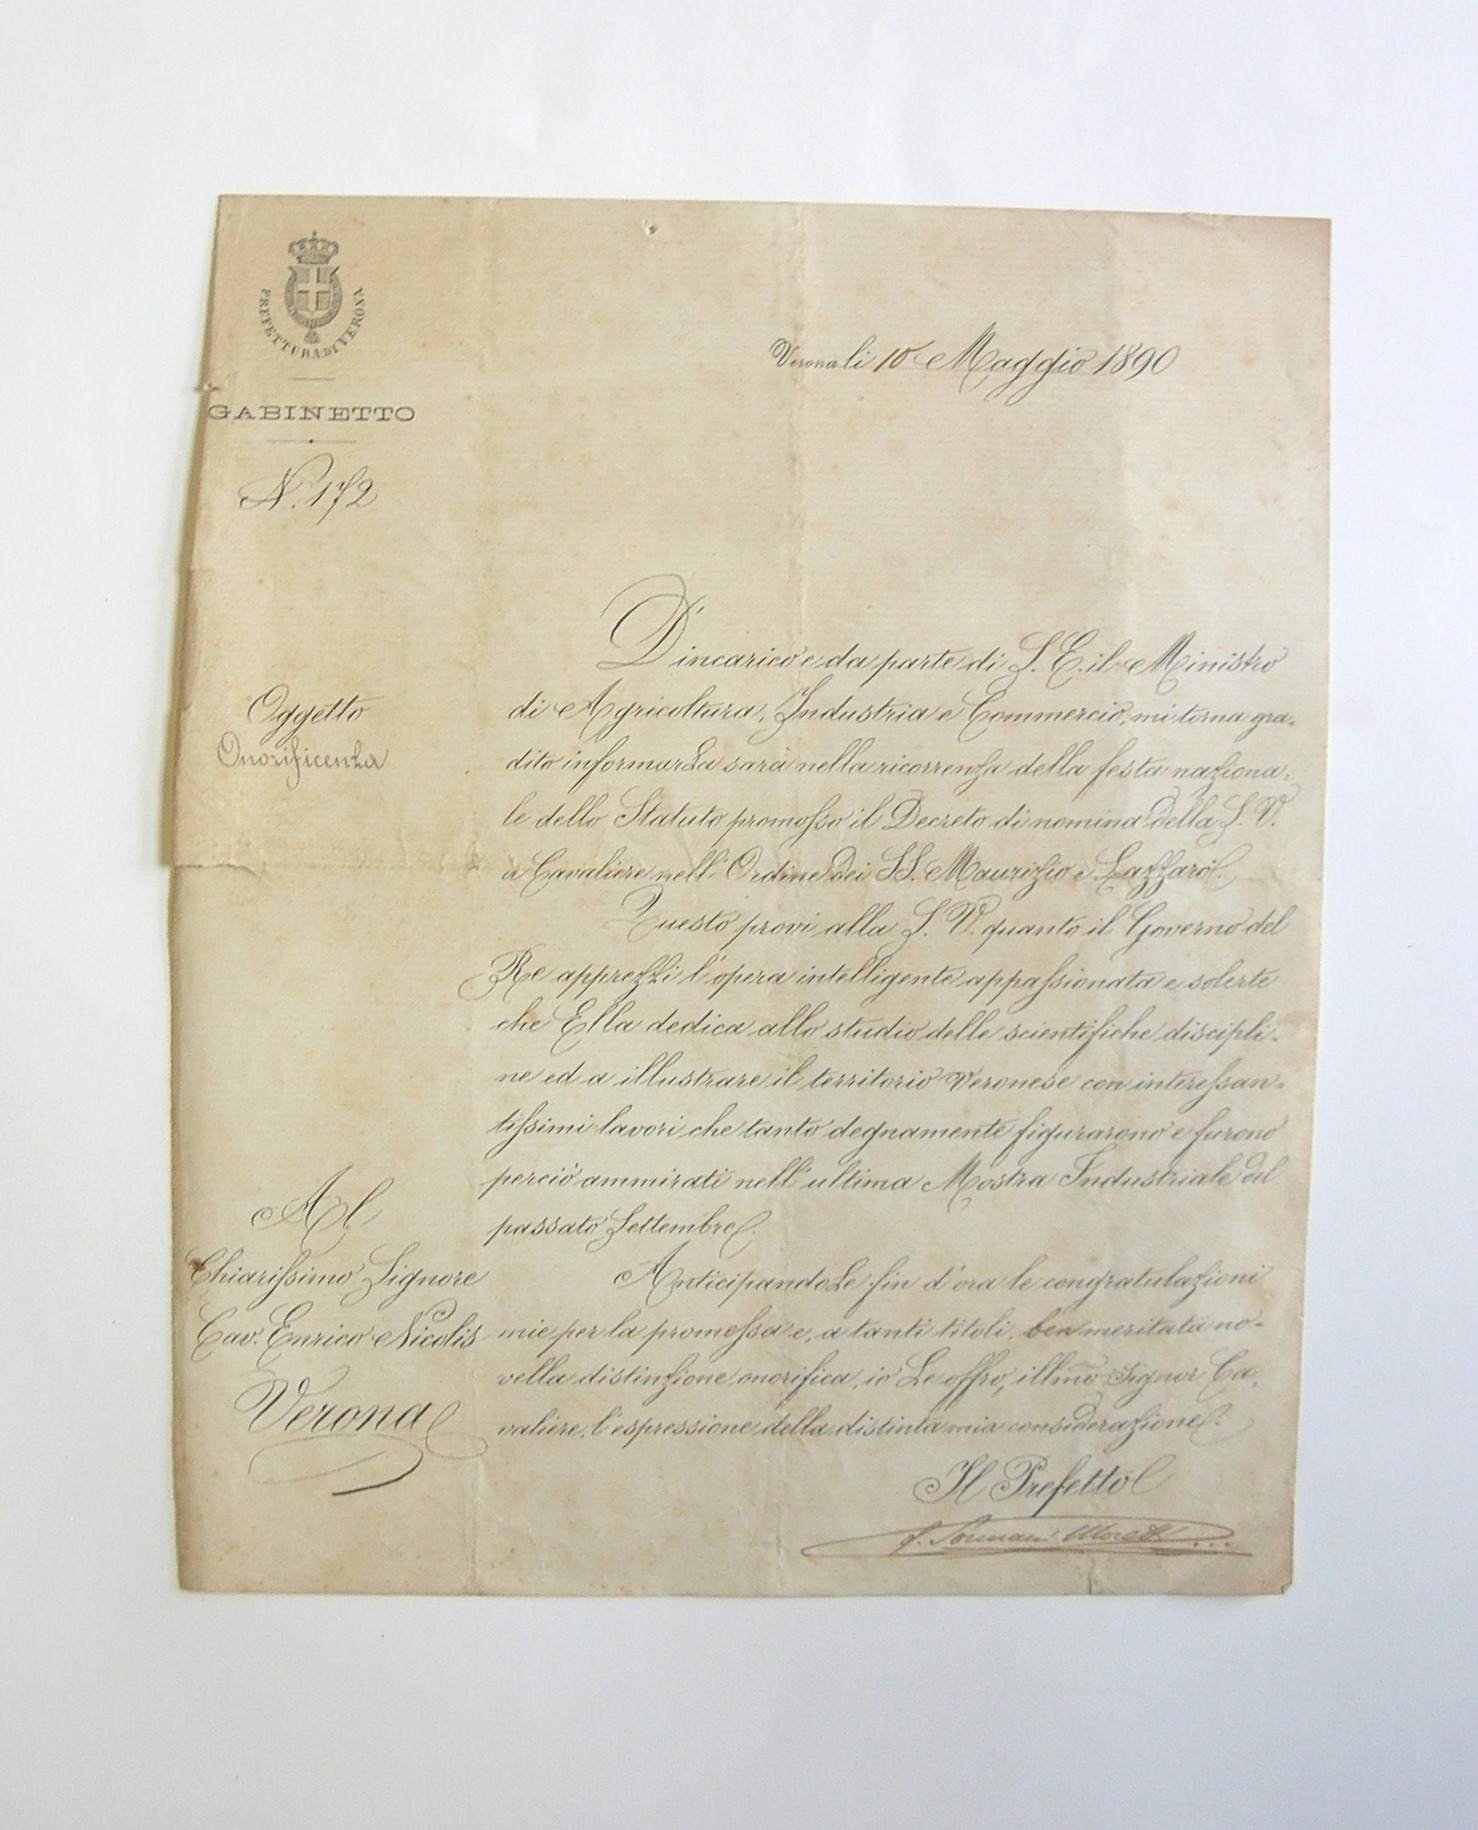 PREFETTURA DI VERONA
GABINETTO
N. 172
Verona li 10 Maggio 1890
Oggetto
Onorificenza
D'incarico e da parte di S. E. il Ministro
di Agricoltura, Industria e Commercio, mi torna gra-
dito informarLa sarà nella ricorrenza della festa naziona-
le dello Statuto promosso il Decreto di nomina della S. V.
a Cavaliere nell'Ordine dei SS. Maurizio e Lazzaro.
Questo provi alla S. V. quanto il Governo del
Re apprezzi l'opera intelligente appassionata e solerte
che Ella dedica allo studio delle scientifiche discipli-
ne ed a illustrare il territorio Veronese con interessan-
tissimi lavori che tanto degnamente figurarono e furono
perciò ammirati nell'ultima Mostra Industriale del
passato Settembre.
AnticipandoLe fin d'ora le congratulazioni
mie per la promessa e, a tanti titoli, ben meritata no-
vella distinzione onorifica, io Le offro, illmo Signor Ca-
valiere, l'espressione della distinta mia considerazione.
Il Prefetto
Al
Chiarissimo Signore
Cav. Enrico Nicolis
Verona